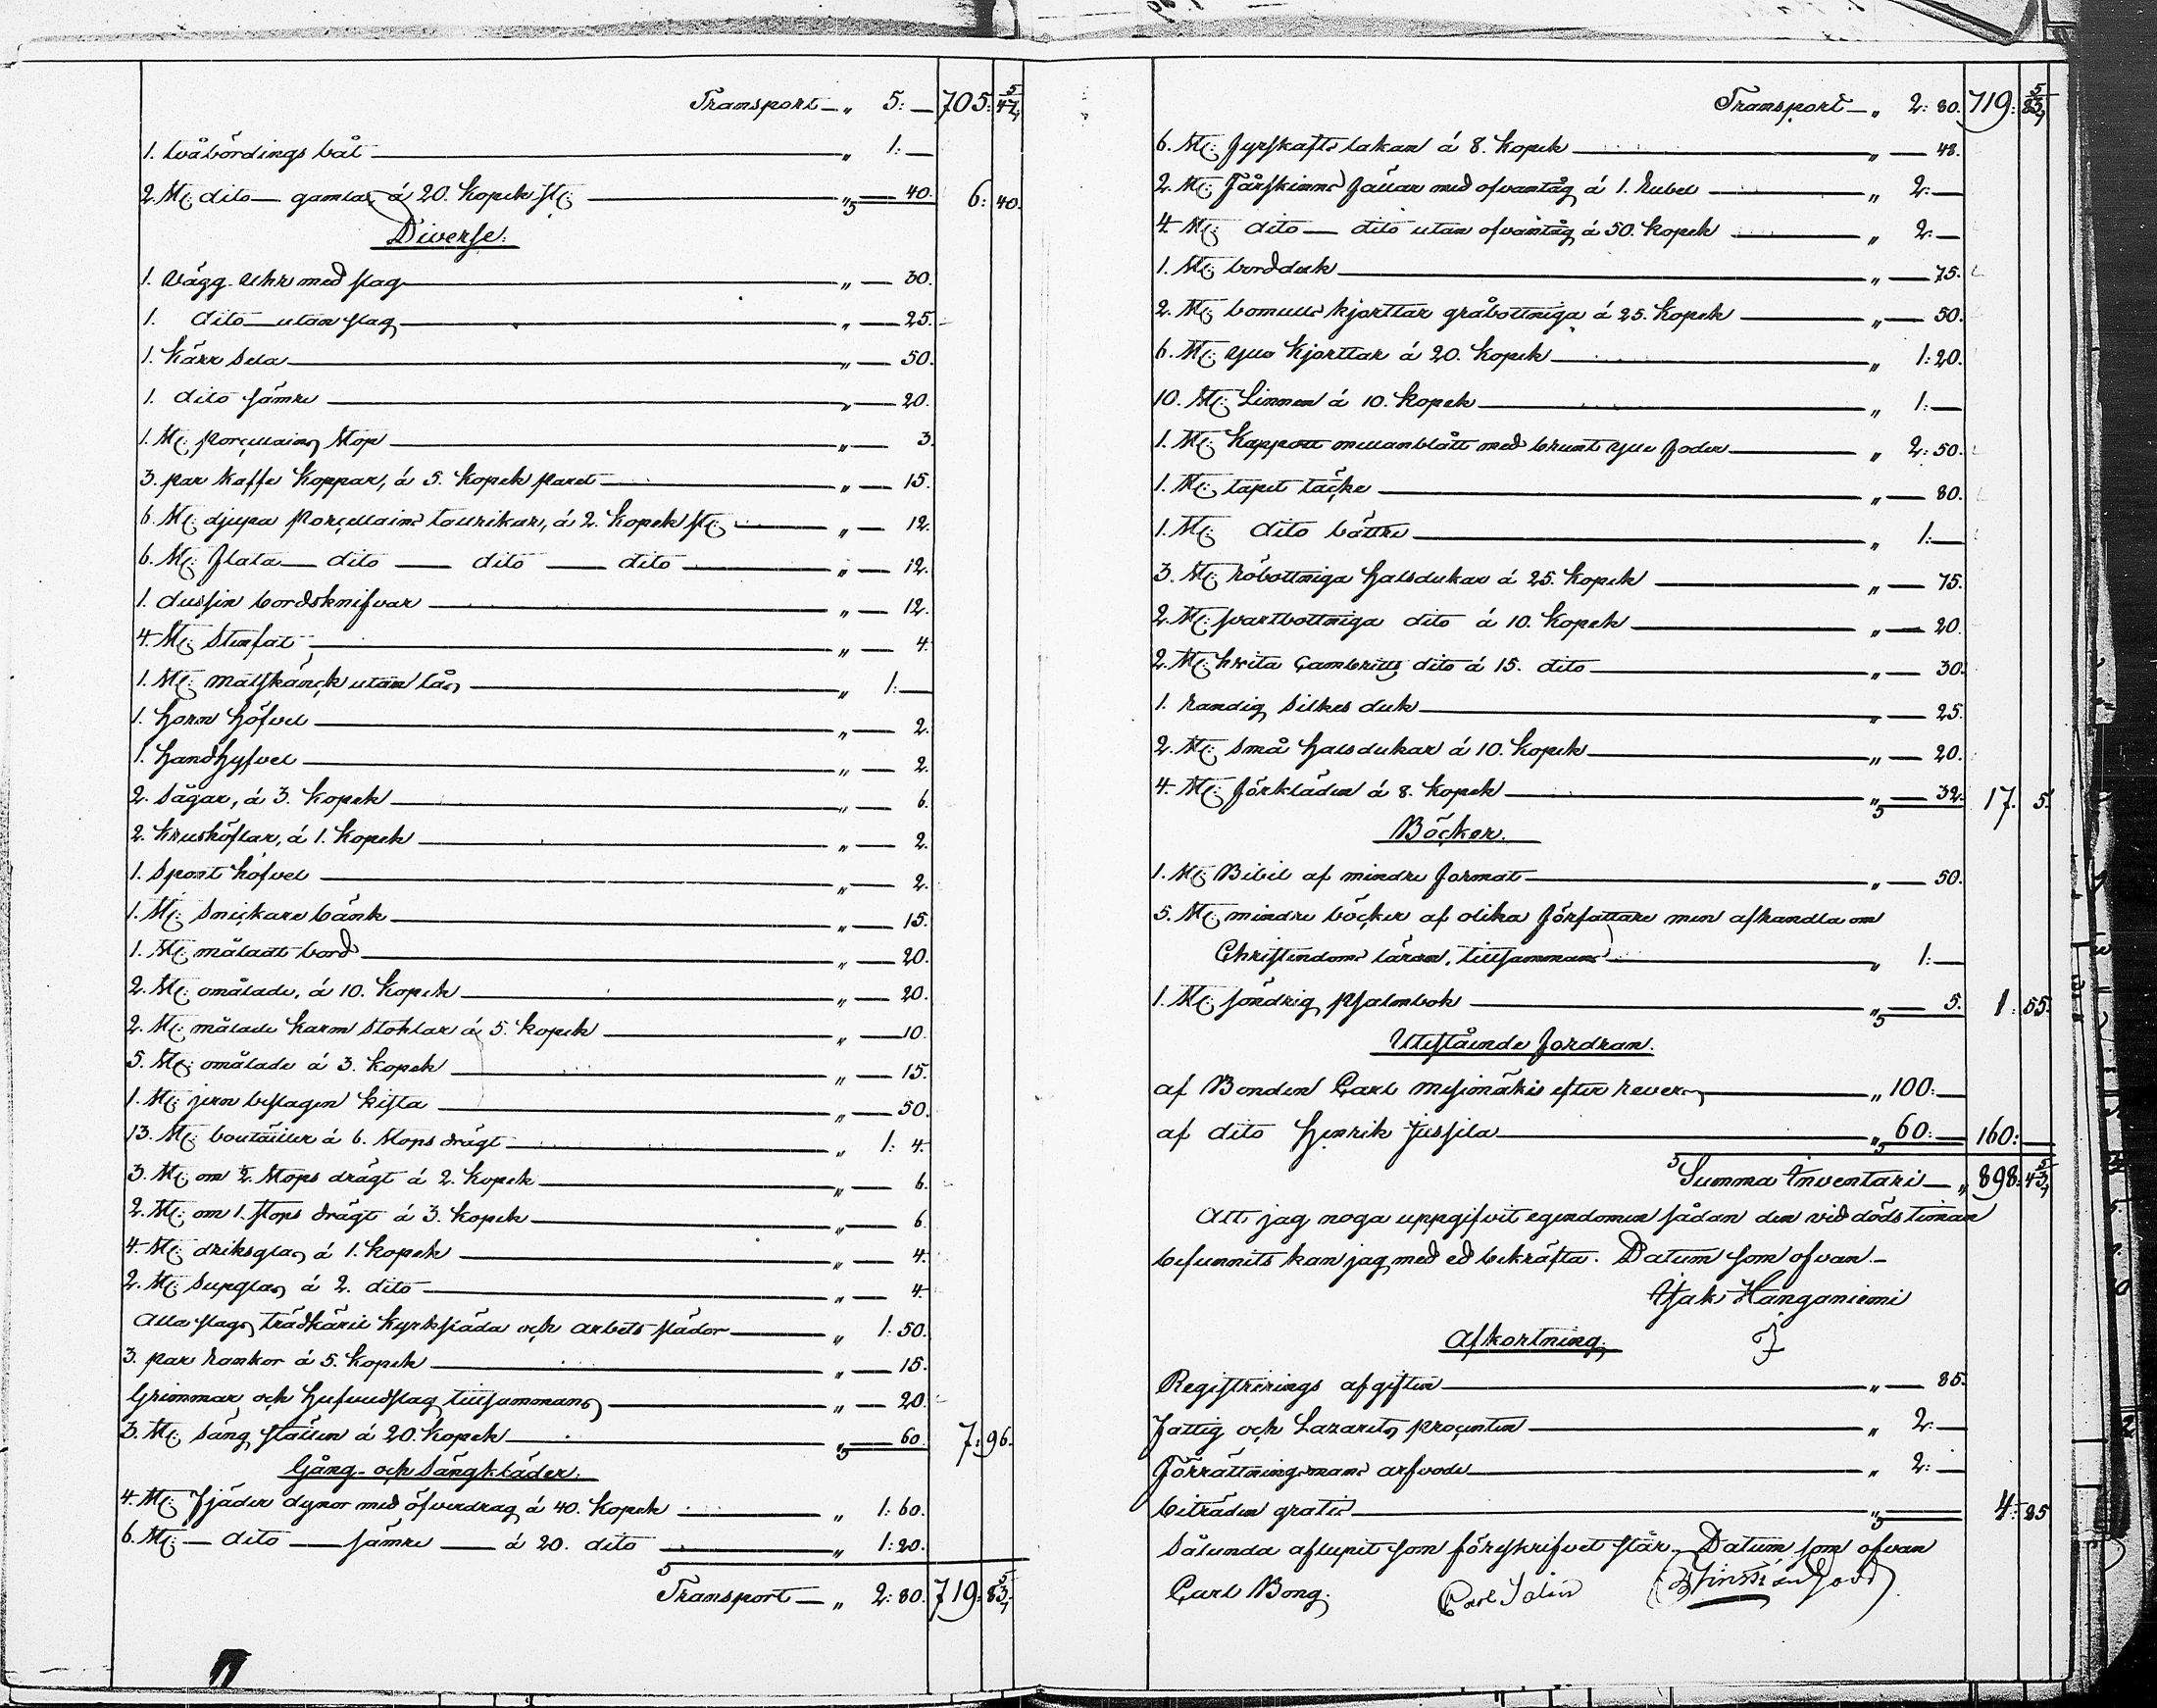 Transport — „ 5: — 705: 47 5/7
1. tvåbördings båt — „ 1: —
2. St: dito — gamla á 20. Kopek St: — „ — 40. 6: 40.
Diverse.
1. Vägg-Uhr med slag — „ — 30.
1. dito utan slag — „ — 25.
1. Kärr Sela — „ — 50.
1. dito sämre — „ — 20.
1. St: Porçellains Stop — „ — 3.
3. par Kaffe Koppar, á 5. Kopek paret — „ — 15.
6. St: djupa Porçellains taurikar, á 2. Kopek St: — „ — 12.
6. St: flata — dito — dito — dito — „ — 12.
1. dussin bordsknifvar — „ — 12.
4. St: Stenfat — „ — 4.
1. St: Matskånçk utan lås — „ 1: —
1. Horn höfvel — „ — 2.
1. Handhyfvel — „ — 2.
2. Sågar, á 3. Kopek — „ — 6.
2. Krushöflar, á 1. Kopek — „ — 2.
1. Spont höfvel — „ — 2.
1. St: Sniçkare bänk — „ — 15.
1. St: måladt bord — „ — 20.
2. St: omålade, á 10. Kopek — „ — 20.
2. St: målade Karm Stohlar á 5. Kopek — „ — 10.
5. St: omålade á 3. Kopek — „ — 15.
1. St: jern beslagen Kista — „ — 50.
13. St: bouteiller á 6. Stops drägt — „ 1: 4.
3. St: om ½ Stops drägt á 2. Kopek — „ — 6.
2. St: om 1. Stops drägt á 3. Kopek — „ — 6.
4. St: driksglas á 1. Kopek — „ — 4.
2. St: Supglas á 2. dito — „ — 4.
Alla slags trädkäril Kyrksläda och arbets slädor — „ 1: 50.
3. par Rankor á 5. Kopek — „ — 15.
Grimmor och Hufvudslag tillsammans — „ — 20.
3. St: Säng ställen á 20. Kopek — „ — 60. 7: 96.
Gång- och Sängkläder.
4. St: Fjäder dynor med öfverdrag á 40. Kopek — „ 1: 60.
6. St: — dito — sämre — á 20. dito — „ 1: 20.
Transport — „ 2: 80. 719: 83 5/7
Transport — „ 2: 80. 719: 83 5/7
6. St: fyrskafts lakan á 8. Kopek — „ — 48.
2. St: Fårskinns fällar med ofvantåg á 1. Rubel — „ 2: —
4. St: dito — dito utan ofvantåg á 50. Kopek — „ 2: —
1. St: bordduk — „ — 75.
2. St: bomulls kjorttar gråbottniga á 25. Kopek — „ — 50.
6. St: ylle Kjorttar á 20. Kopek — „ 1: 20.
10. St: Linnen á 10. Kopek — „ 1: —
1. St: Kappott mellanblått med brunt ylle foder — „ 2: 50.
1. St: tapet täçke — „ — 80.
1. St: dito bättre — „ 1: —
3. St: röbottniga halsdukar á 25. Kopek — „ — 75.
2. St: svartbottniga dito á 10. Kopek — „ — 20.
2. St: hvita Çambritts dito á 15. dito — „ — 30.
1. randig Silkes duk — „ — 25.
2. St: små halsdukar á 10. Kopek — „ — 20.
4. St: förkläden á 8. Kopek — „ — 32. 17. 5.
Böçker.
1. St: Bibel af mindre format — „ — 50.
5. St: mindre böçker af olika författare men afhandla om
Christendoms läran, tillsammans — „ 1: —
1. St: söndrig Psalmbok — „ — 5. 1: 55.
Utestående fordran.
af Bonden Carl Mesionäkis efter revers — „ 100: —
af dito Henrik Jussila — „ 60: — 160: —
Summa Inventarii — „ 898: 43 5/7
Att jag noga uppgifvit egendomen sådan den vid döds timan
befunnits kan jag med ed bekräfta. Datum som ofvan. —
Isak Hanganiemi
Afkortning.
Registrerings afgiften — „ — 85.
Fattig och Lazarets proçenten — „ 2: —
Förrättningsmans arfvode — „ 2: —
biträden gratis — „ — 4: 85
Sålunda aflupit som föreskrifvet står. Datum som ofvan
Carl Bong. Carl Salin